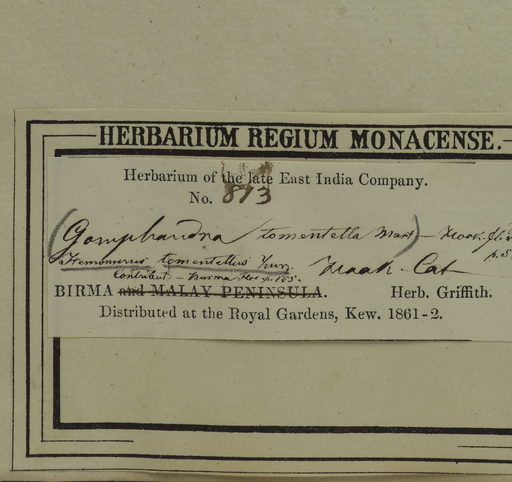 HERBARIUM REGIUM MONACENSE.
Herbarium of the late East India Company.
No. 873
(Gomphandra tomentella Mast) - Hook. fl.
Stemonurus tomentellus Kurz
Contribut. - Burma Flor p. 105. Hook. Cat
BIRMA and MALAY PENINSULA. Herb. Griffith.
Distributed at the Royal Gardens, Kew. 1861-2.